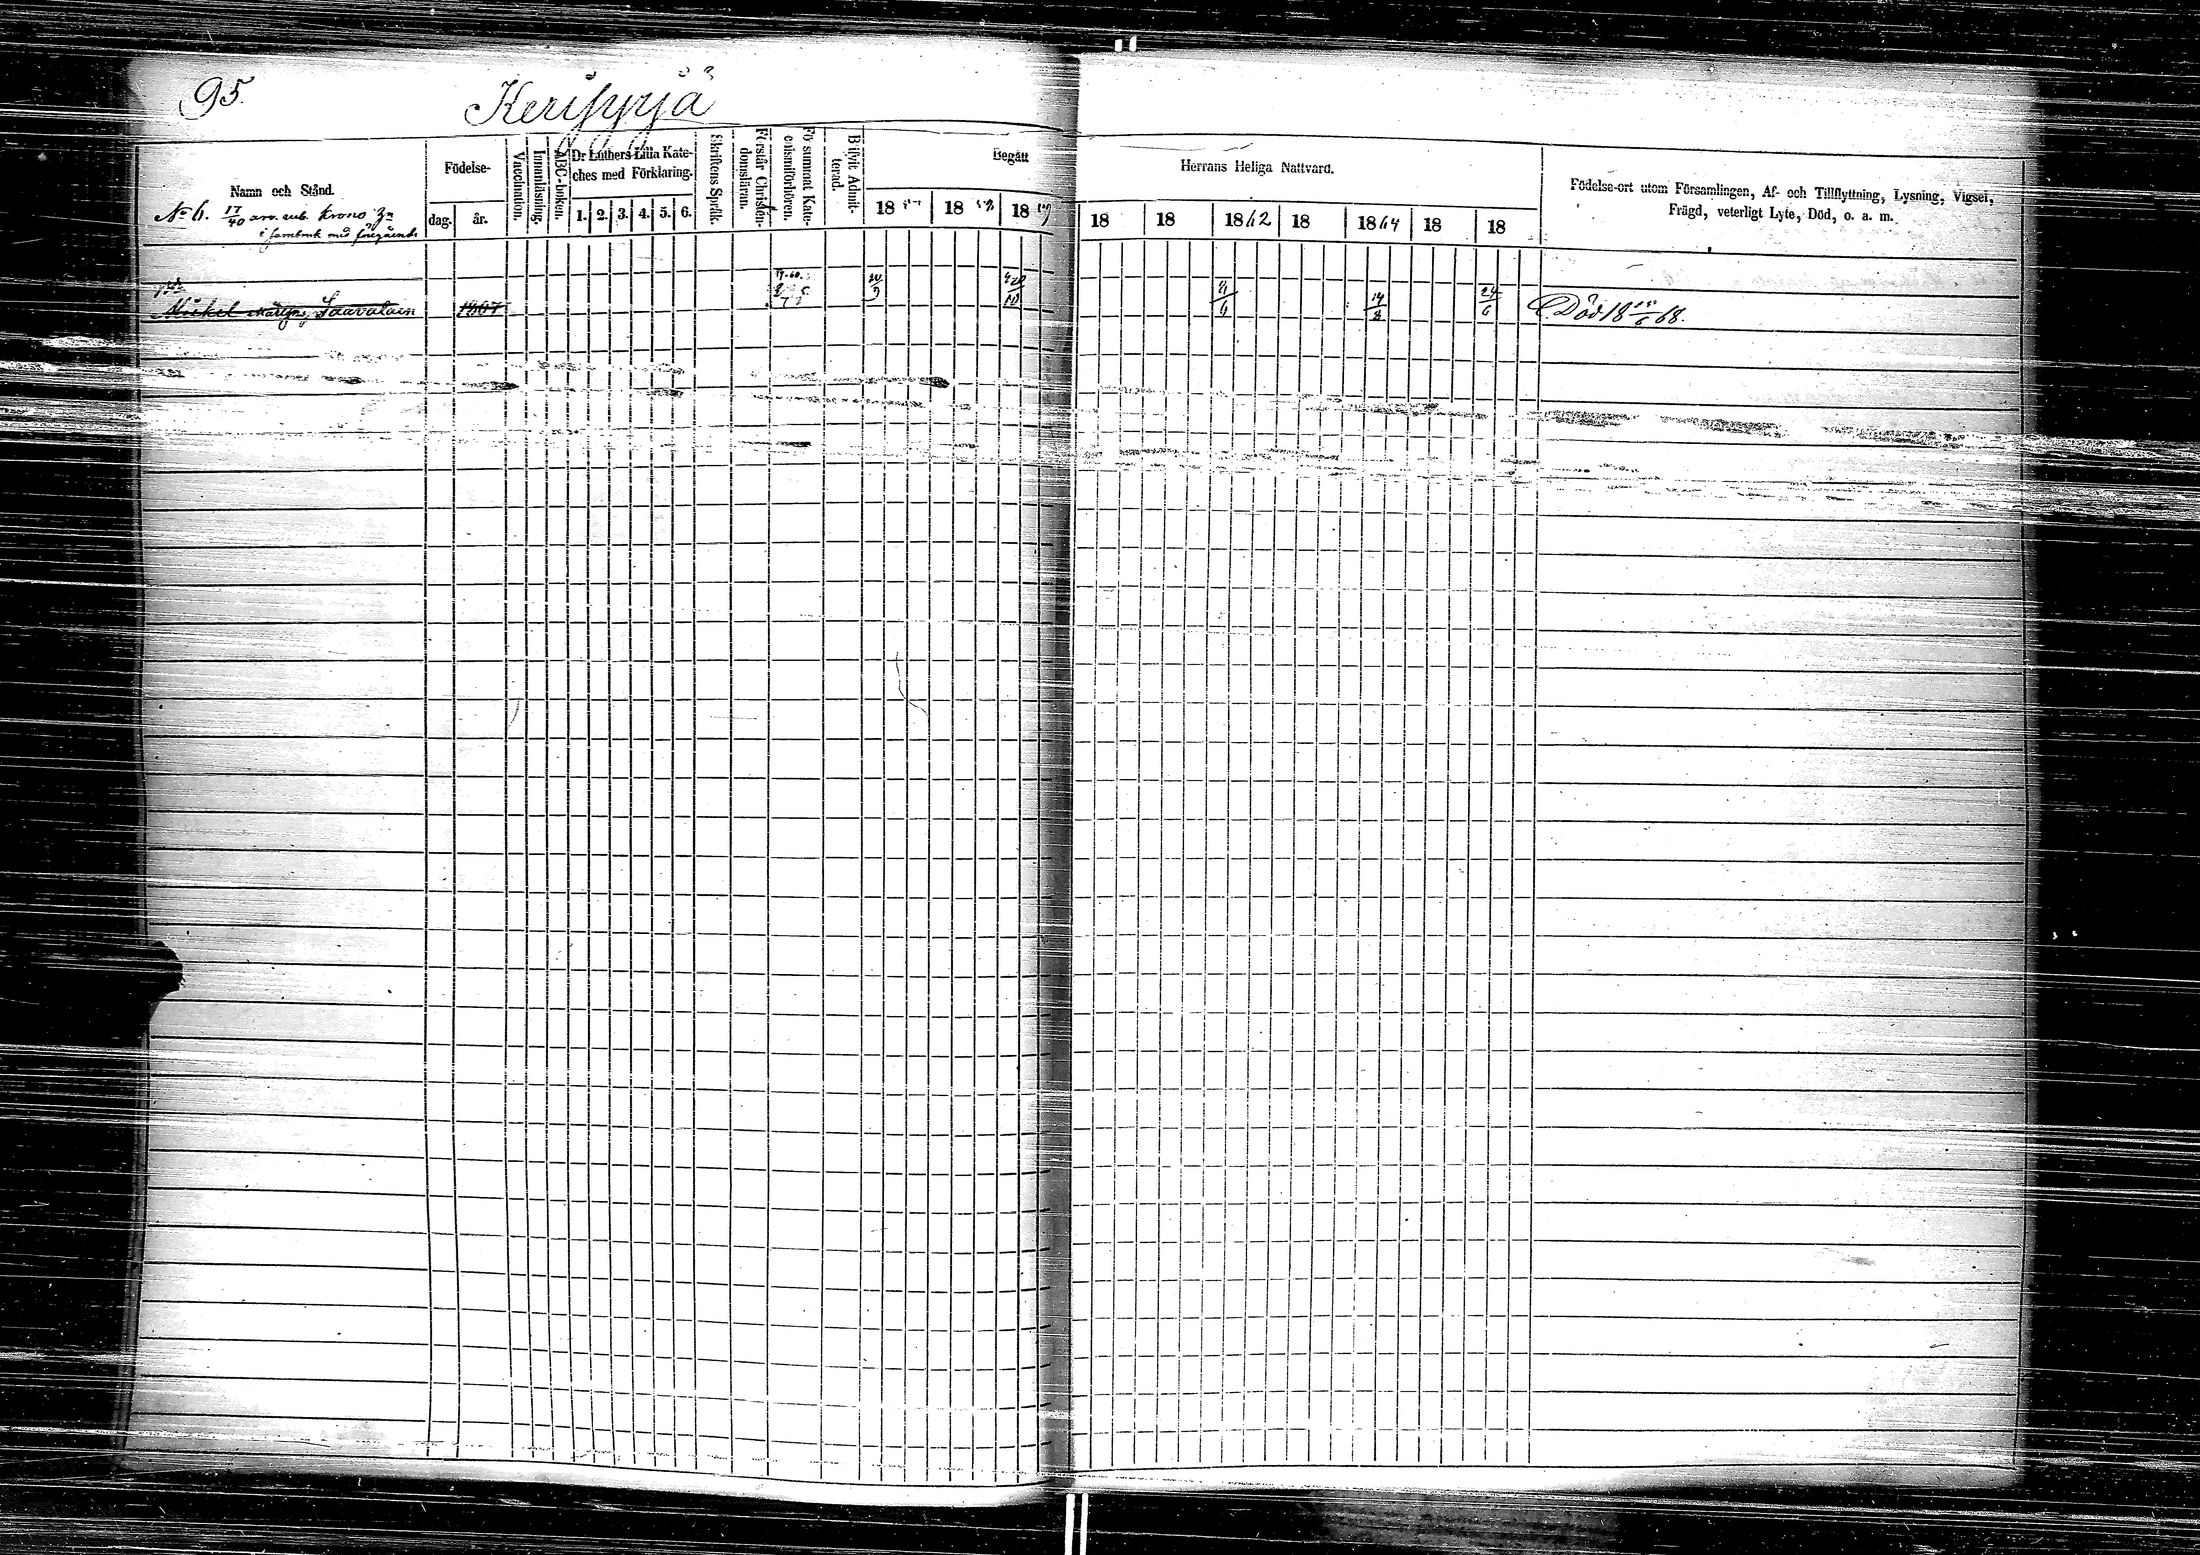 95.
Kerisyrjä
Namn och Stånd.
Födelse-
dag.
år.
Vaccination.
Innanläsning.
ABC-boken.
Dr Luthers Lilla Kate-
ches med Förklaring.
1. 2. 3. 4. 5. 6.
Skriftens Språk.
Förstår Christen-
domsläran.
Försummat Kate-
chismiförhören.
Blifvit Admit-
terad.
Begått
Herrans Heliga Nattvard.
18
18 58
18 59
18
18
1862
18
1864
18
18
Födelse-ort utom Församlingen, Af- och Tillflyttning, Lysning, Vigsel,
Frägd, veterligt Lyte, Död, o. a. m.
No 6. 17/40 krono
i sambruk med föregående
Mickel Sauvalain 1807
24/6
Död 18 /6 68.